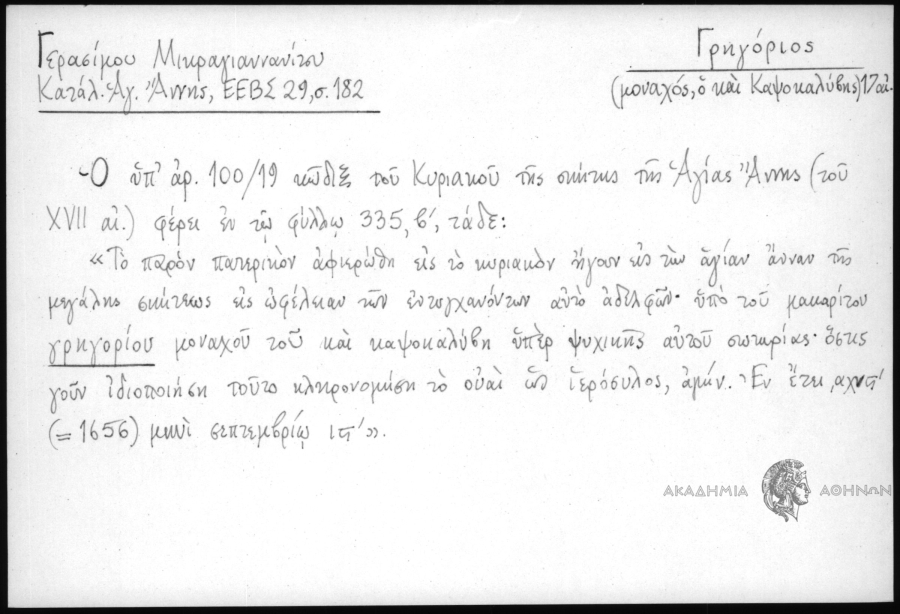 Γερασίμου Μικραγιαννανίτου
Κατάλ. Ἁγ. Ἄννης, ΕΕΒΣ 29, σ. 182
Γρηγόριος
(μοναχός, ὁ καὶ Καψοκαλύβης) 17 αἰ.
Ὁ ὑπ' ἀρ. 100/19 κῶδιξ τοῦ Κυριακοῦ τῆς σκήτης τῆς Ἁγίας Ἄννης (τοῦ
XVII αἰ.) φέρει ἐν τῷ φύλλῳ 335, β', τάδε:
«Τὸ παρὸν πατερικὸν ἀφιερώθη εἰς τὸ κυριακὸν ἤγουν εἰς τὴν ἁγίαν ἄνναν τῆς
μεγάλης σκήτεως εἰς ὠφέλειαν τῶν ἐντυγχανόντων αὐτὸ ἀδελφῶν· ὑπὸ τοῦ μακαρίτου
γρηγορίου μοναχοῦ τοῦ καὶ καψοκαλύβη ὑπὲρ ψυχικῆς αὐτοῦ σωτηρίας· ὅστις
γοῦν ἰδιοποιήση τοῦτο κληρονομήση τὸ οὐαὶ ὡς ἱερόσυλος, ἀμήν. Ἐν ἔτει ͵αχνϛ'
(=1656) μηνὶ σεπτεμβρίῳ ιϛ'».
ΑΚΑΔΗΜΙΑ ΑΘΗΝΩΝ